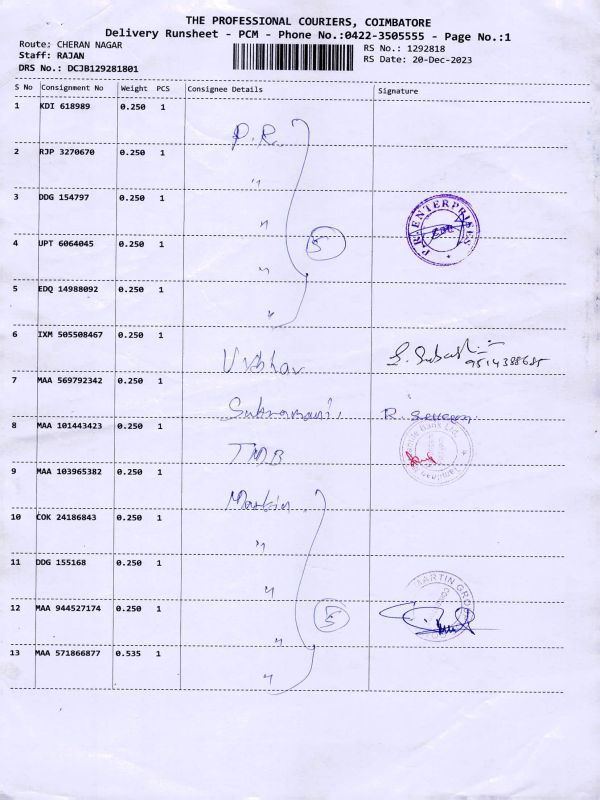 THE PROFESSIONAL COURIERS, COIMBATORE
Delivery Runsheet - PCM - Phone No.:0422-3505555 - Page No.:1
Route: CHERAN NAGAR
RS No.: 1292818
Staff: RAJAN
RS Date: 20-Dec-2023
DRS No.: DCJB129281801
S No Consignment No Weight PCS Consignee Details Signature
1 KDI 618989 0.250 1 P.R.
2 RJP 3270670 0.250 1 "
3 DDG 154797 0.250 1 "
P.R. ENTERPRISES
4 UPT 6064045 0.250 1 " 5
5 EDQ 14988092 0.250 1 "
6 IXM 505508467 0.250 1 Vibhav
7 MAA 569792342 0.250 1 Subramani. R.
8 MAA 101443423 0.250 1 TMB
Bank Ltd.
9 MAA 103965382 0.250 1 Martin
10 COK 24186843 0.250 1 "
11 DDG 155168 0.250 1 "
MARTIN GRO
12 MAA 944527174 0.250 1 " 5
13 MAA 571866877 0.535 1 "